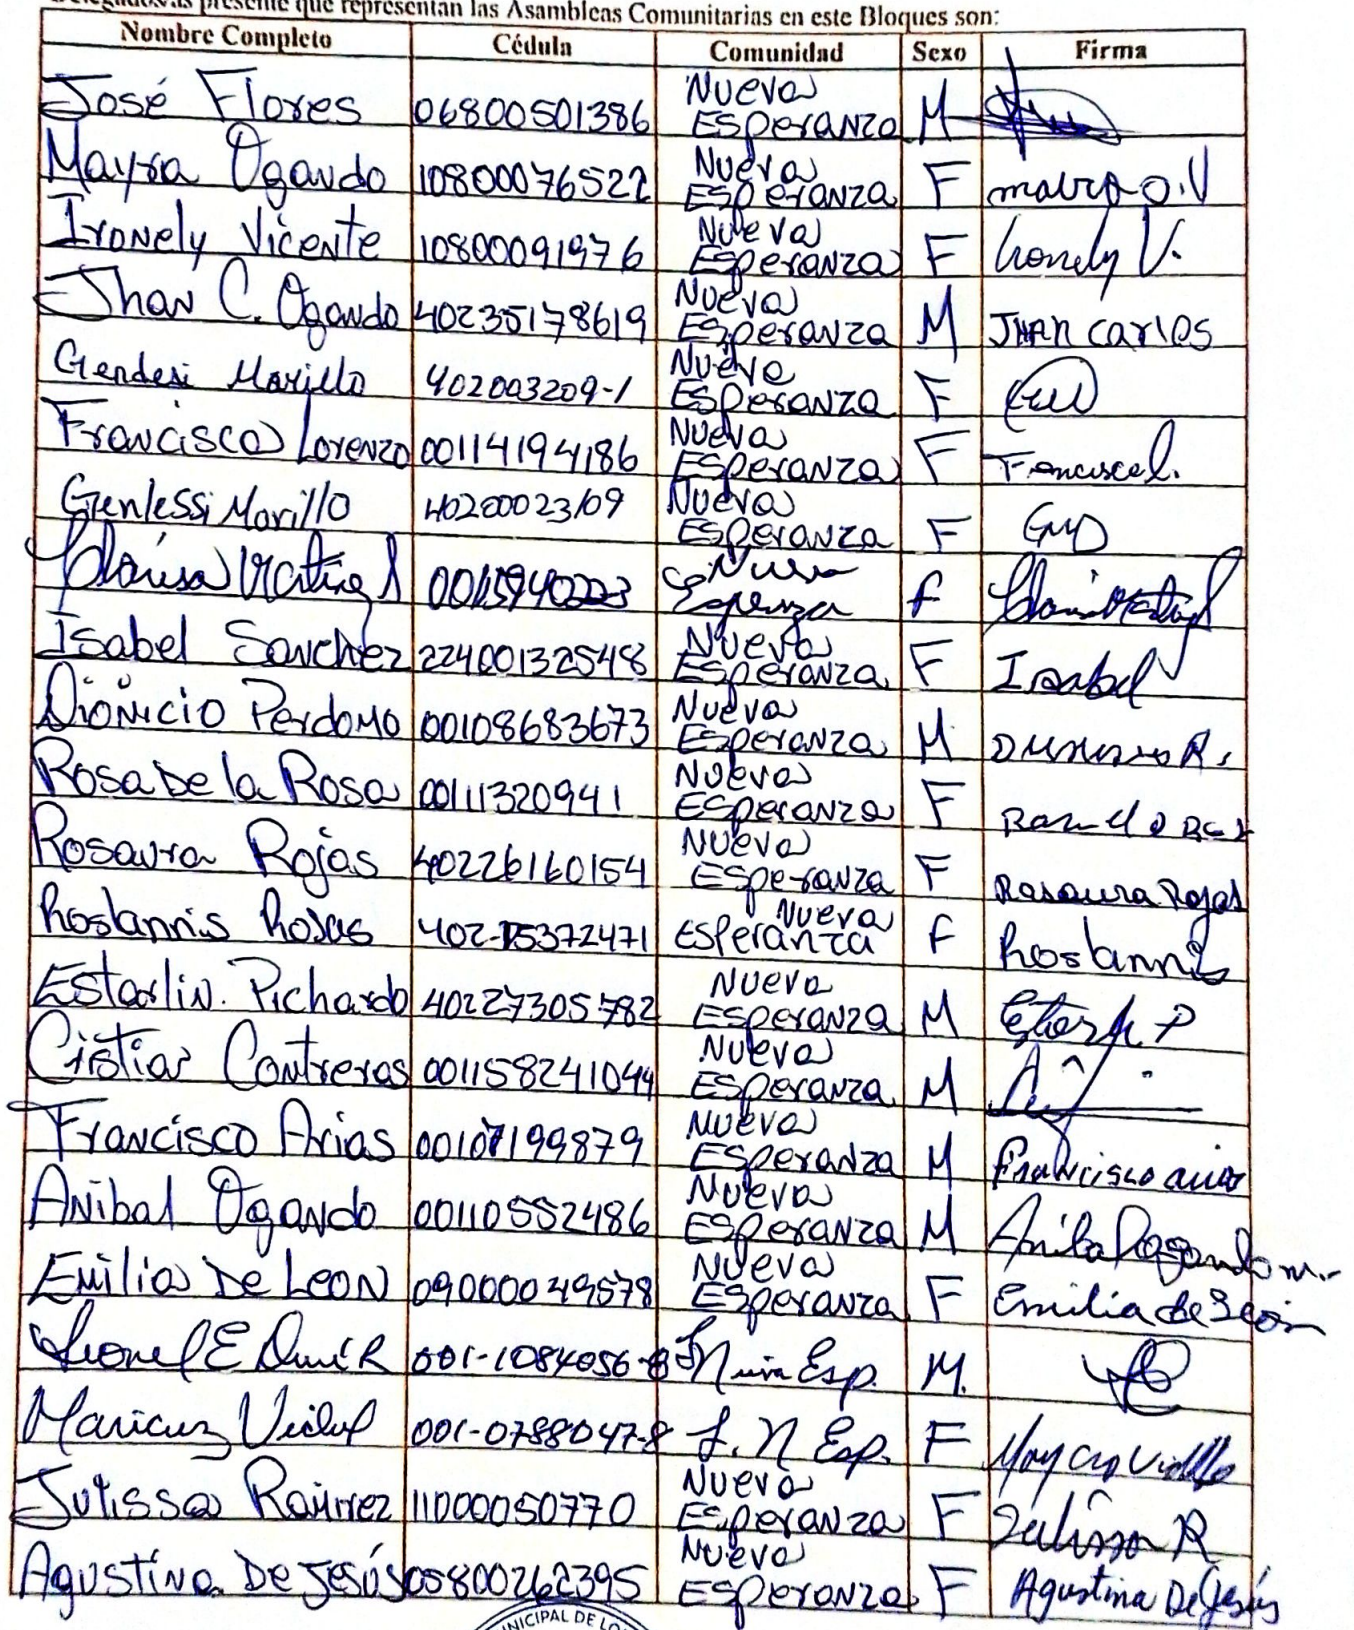 presente que representan las Asambleas Comunitarias en este Bloques son:
Nombre Completo Cédula Comunidad Sexo Firma
José Flores 06800501386 Nueva Esperanza M
Mayra Ogando 10800076522 Nueva Esperanza F mayra O.V
Ironely Vicente 10800091976 Nueva Esperanza F Ironely V.
Jhan C. Ogando 40235178619 Nueva Esperanza M JHAN CARLOS
Gendesi Morillo 402003209-1 Nueva Esperanza F
Francisca Lorenzo 00114194186 Nueva Esperanza F Francisca L.
Genlessi Morillo 40200023109 Nueva Esperanza F GMD
00115940223 Nueva Esperanza f
Isabel Sanchez 22400132548 Nueva Esperanza F Isabel
Dionicio Perdomo 00108683673 Nueva Esperanza M
Rosa De la Rosa 00111320941 Nueva Esperanza F
Rosaura Rojas 40226160154 Nueva Esperanza F Rosaura Rojas
Rosbannis Rojas 402-15372471 Nueva Esperanza F Rosbannis
Estarlin. Pichardo 40227305782 Nueva Esperanza M
Cistian Contreras 001158241044 Nueva Esperanza M
Francisco Arias 00107199879 Nueva Esperanza M Francisco arias
Anibal Ogando 00110552486 Nueva Esperanza M Anibal Ogando m.
Emilia De Leon 09000049578 Nueva Esperanza F Emilia de León
Leonel E 001-1084056-8 Nueva Esp. M.
Maricruz Vidal 001-0788047-8 J. N Esp. F
Julissa Ramirez 11000050770 Nueva Esperanza F Julissa R
Agustina De Jesús 05800262395 Nueva Esperanza F Agustina De Jesús